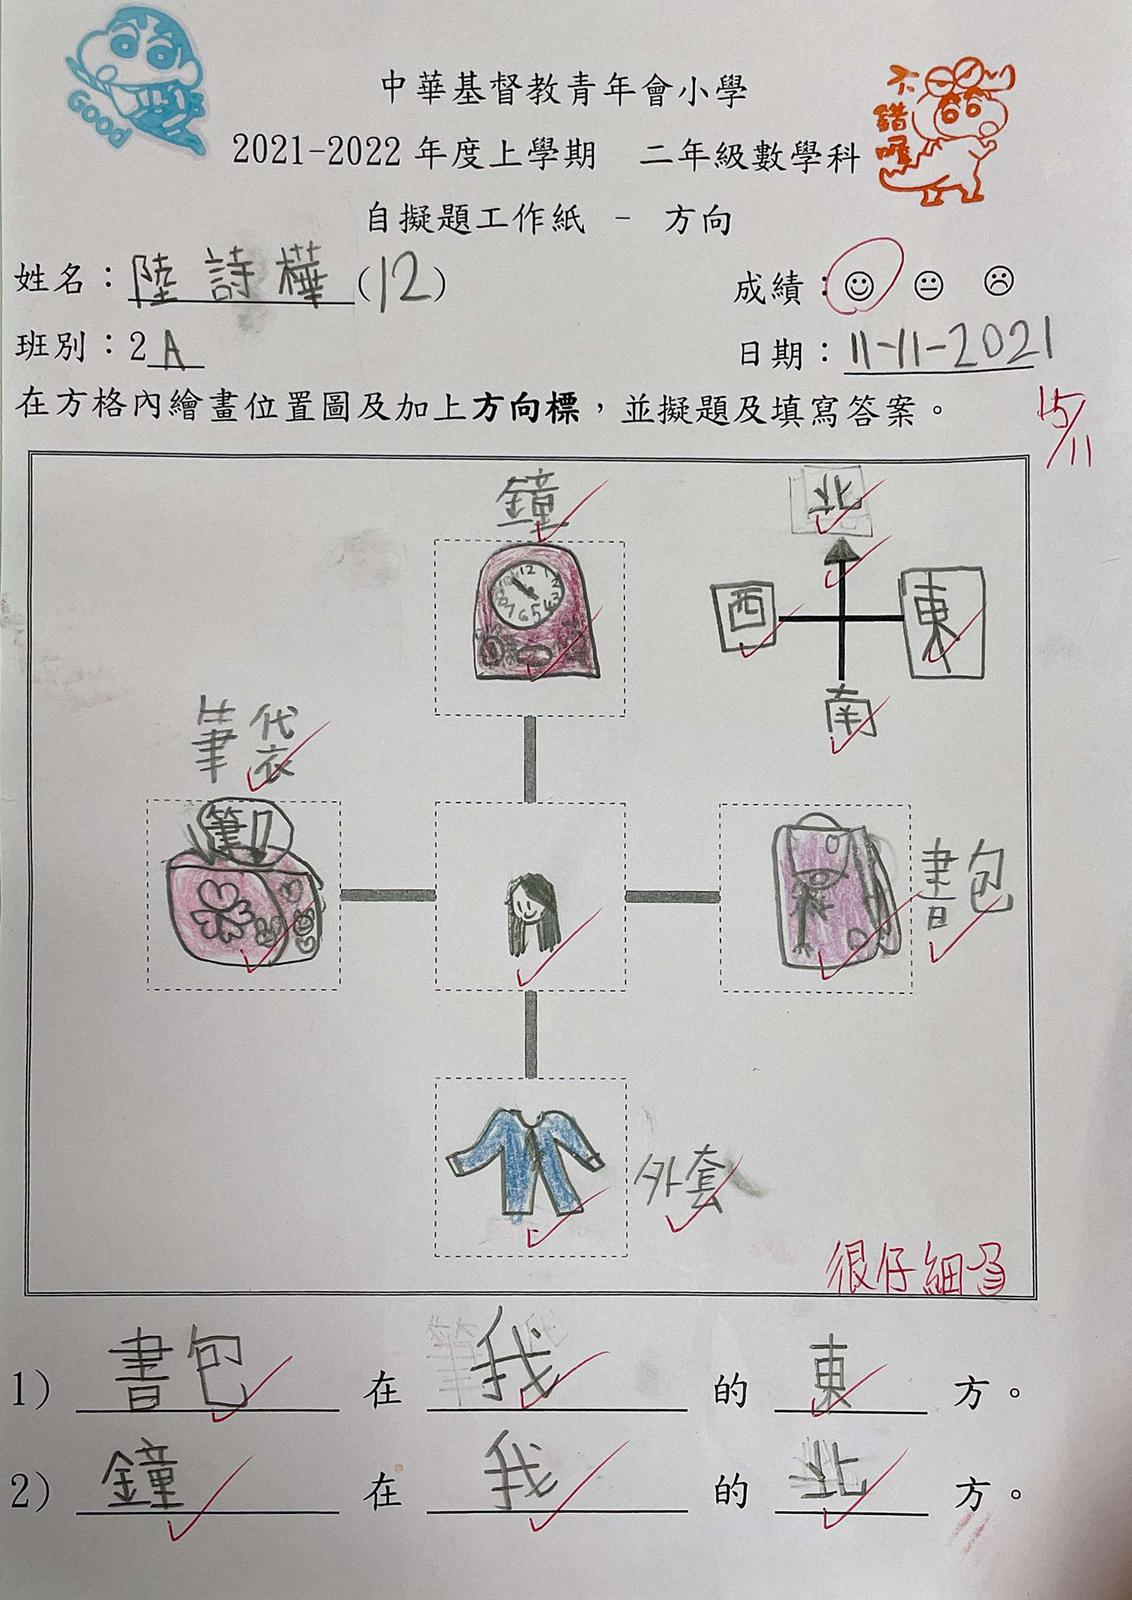 GOOD
不錯喔
中華基督教青年會小學
2021-2022 年度上學期 二年級數學科
自擬題工作紙 - 方向
姓名：陸詩樺(12)
成績：
班別：2A
日期：11-11-2021
在方格內繪畫位置圖及加上方向標，並擬題及填寫答案。
15/11
鐘
北
西
東
南
筆袋
筆
書包
外套
很仔細
1) 書包 在 我 的 東 方。
2) 鐘 在 我 的 北 方。